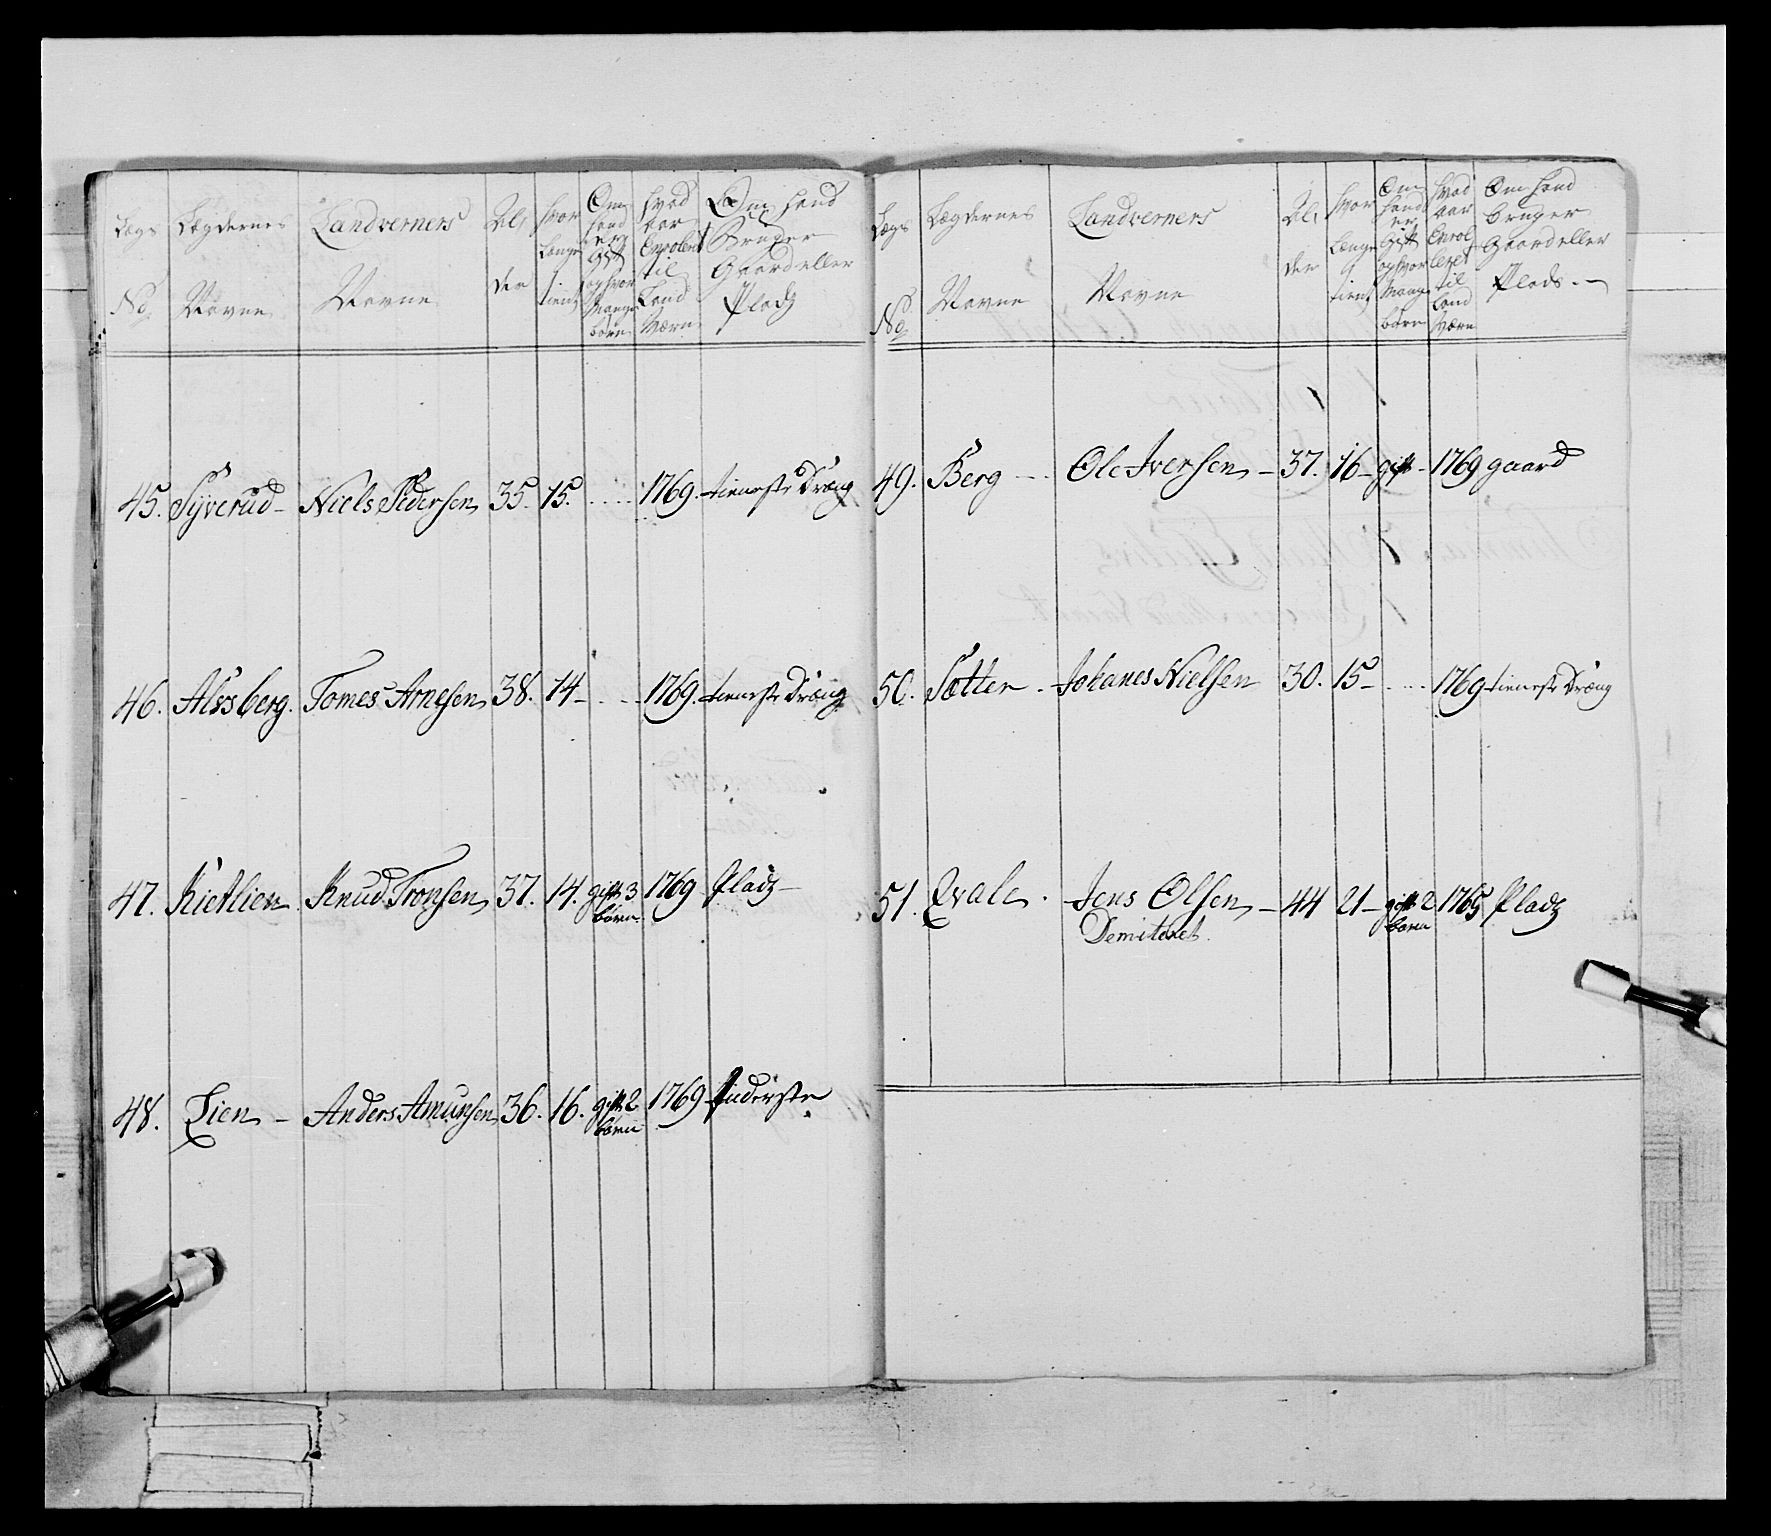 Lægs No
Lægdernes Navne
Landverners Navne
Al, der
hvor Længe tient
Om hand er Gift og hvor Mange børn
hvad aar Enrolert til Land Værn
Om hand Bruger Gaard eller Pladz
45. Syverud - Niels Pedersen 35. 15. 1769. tieneste Dræng
46. Alssberg. Tomes Arnesen 38. 14 - 1769. tieneste Dræng
47. Kietlien Knud Tronsen 37. 14. gift 3 børn 1769 Pladz -
48. Lien - Anders Amunsen 36. 16. gift 2 børn 1769 Inderste
Lægs No
Lægdernes Navne
Landverners Navne
Al, der
hvor Længe tient
Om hand er Gift og hvor Mange børn
hvad aar Enrolleret til Land Værn
Om hand bruger Gaard eller Plads. -
49. Berg - Ole Iversen - 37. 16 - gift - 1769 gaard
50. Sætter. Johanes Nielsen 30. 15 - 1769 tieneste Dræng
51. Qvale. Jens Olsen - 44 21 - gift 2 børn 1765 Pladz
Demiteret.